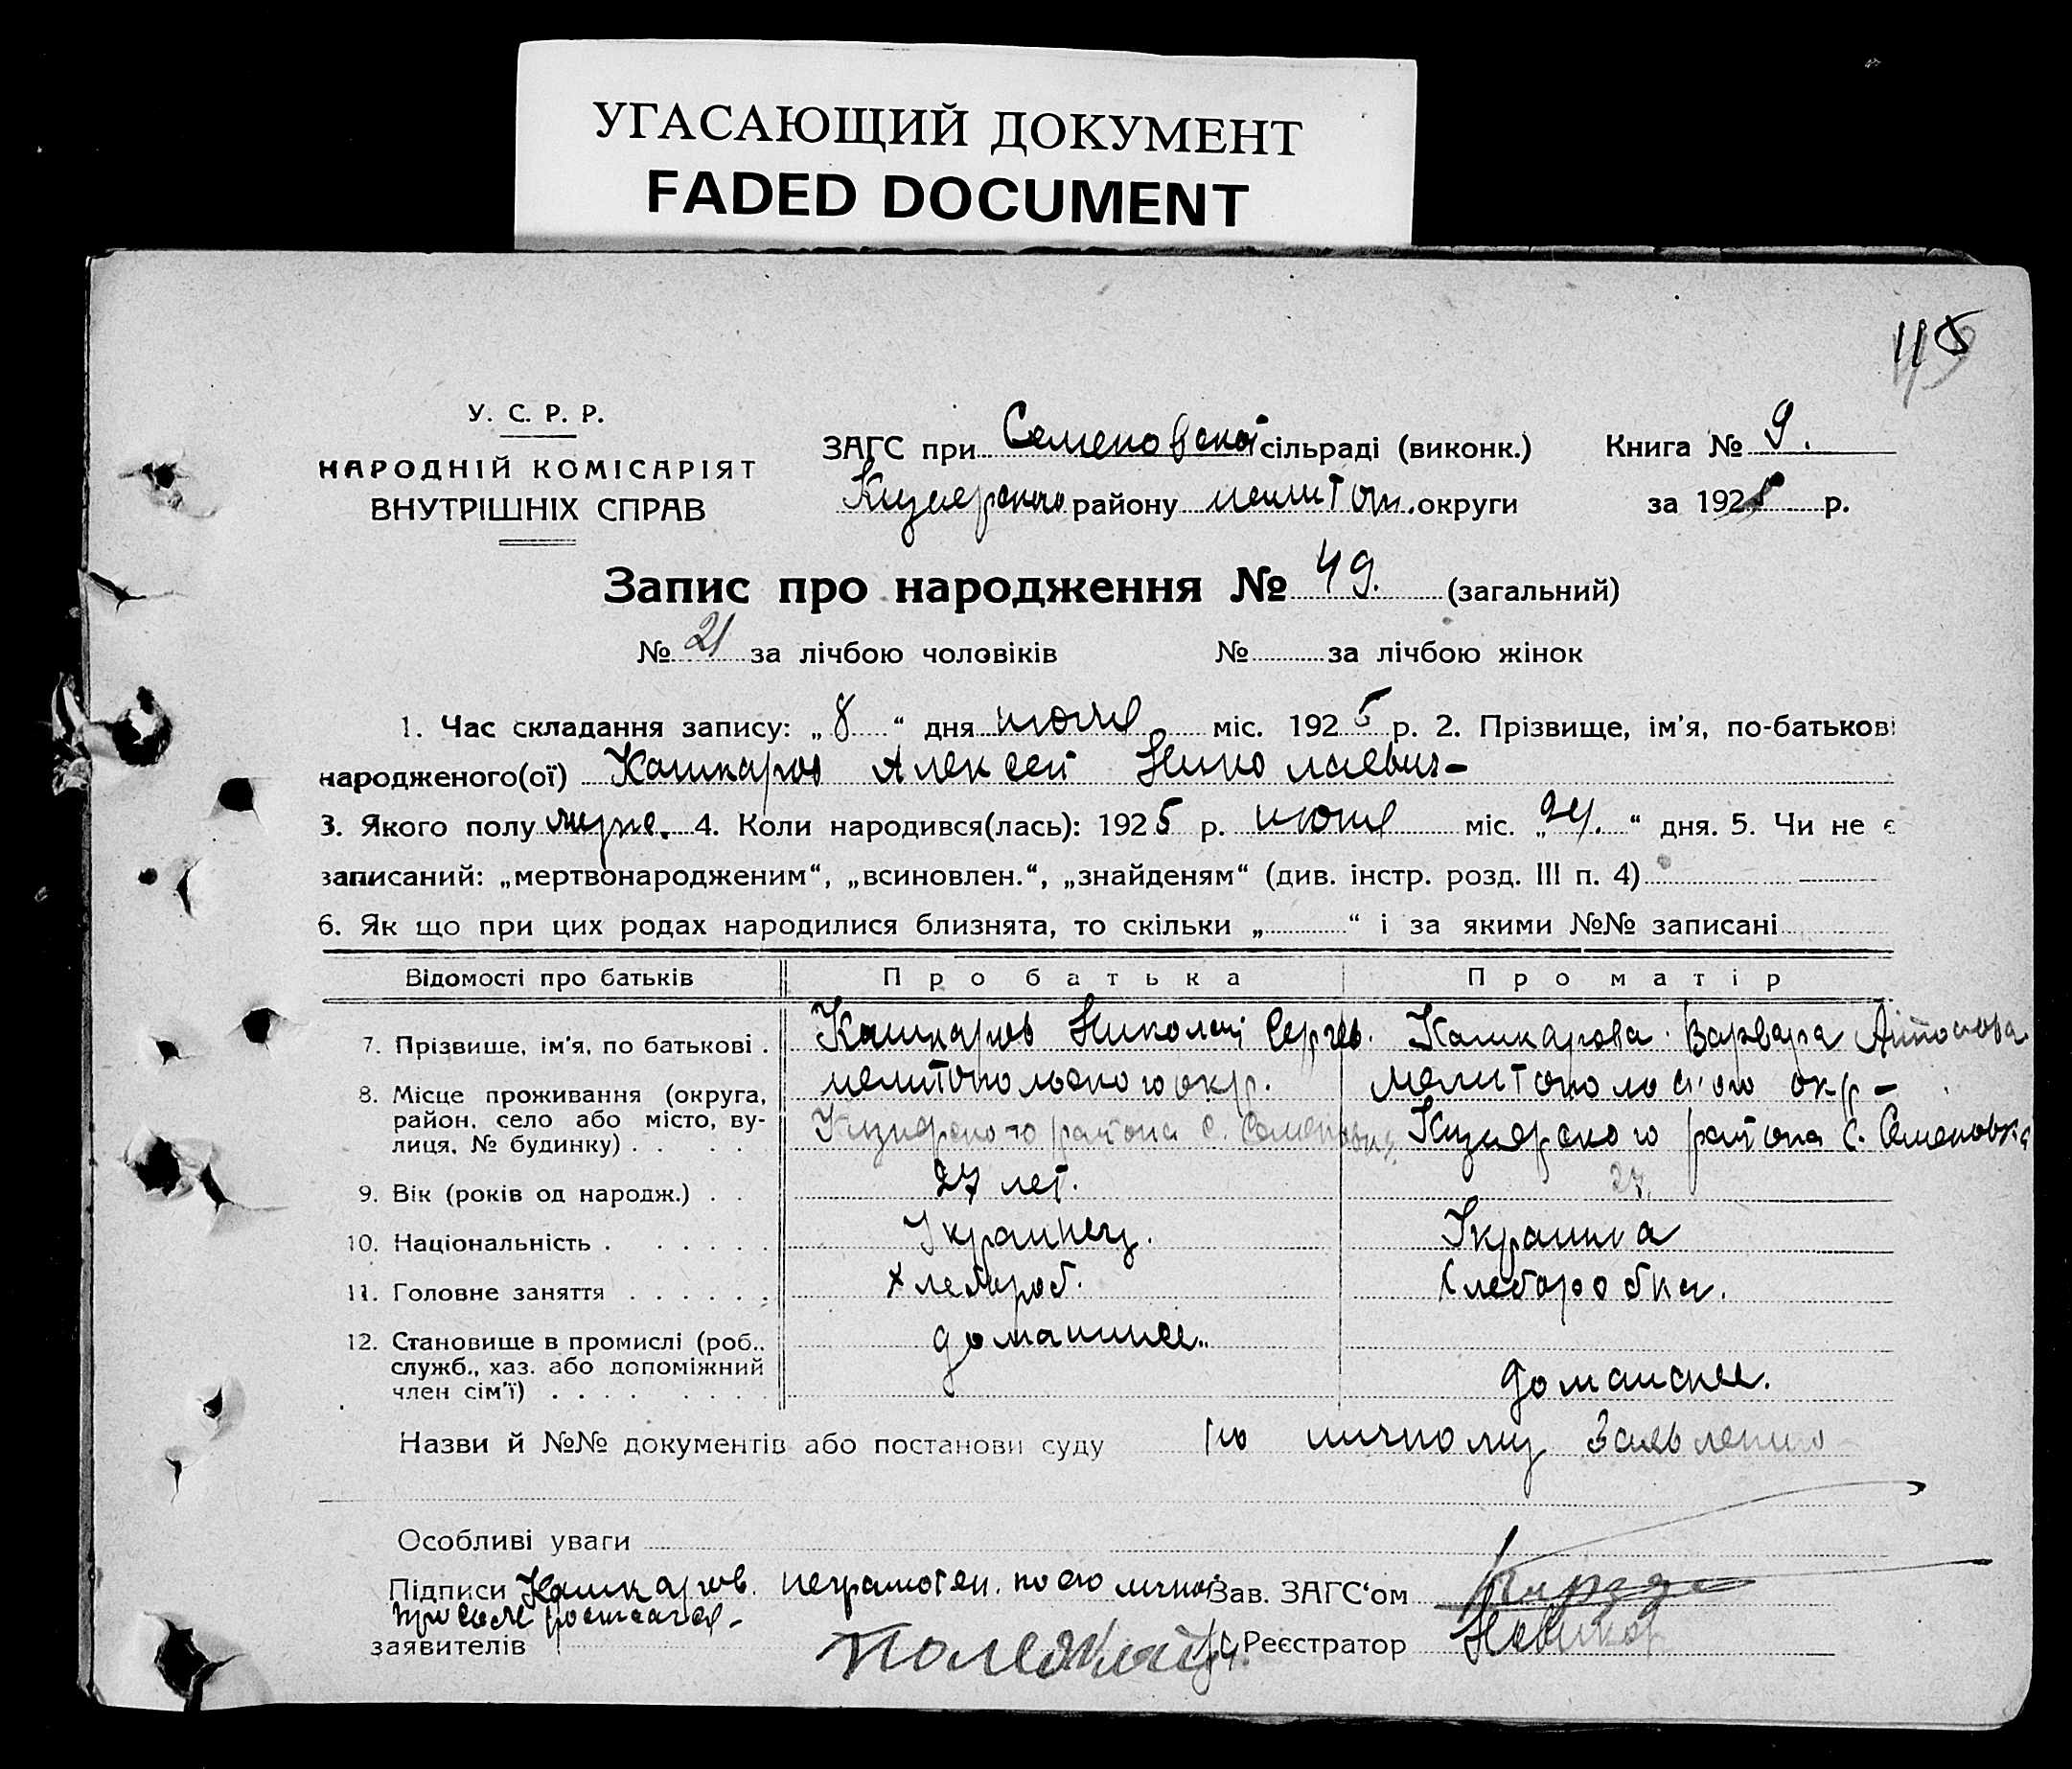 УГАСАЮЩИЙ ДОКУМЕНТ
FADED DOCUMENT
115
У. С. Р. Р.
НАРОДНІЙ КОМІСАРІЯТ
ВНУТРІШНІХ СПРАВ
ЗАГС при Семеновской сільраді (виконк.)
Кизиярского району мелитоп. округи
Книга № 9.
за 1925 р.
Запис про народження № 49. (загальний)
№ 21 за лічбою чоловіків № за лічбою жінок
1. Час складання запису: „ 8 “ дня июля міс. 1925 р. 2. Прізвище, ім'я, по-батькові
народженого(ої) Кашкаров Алексей Николаевич-
3. Якого полу муже. 4. Коли народився(лась): 1925 р. июня міс. „ 24. “ дня. 5. Чи не є
записаний: „мертвонародженим“, „всиновлен.“, „знайденям“ (див. інстр. розд. III п. 4)
6. Як що при цих родах народилися близнята, то скільки „ “ і за якими №№ записані
Відомості про батьків Про батька Про матір
7. Прізвище, ім'я, по батькові . Кашкаров Николай Сергев. Кашкарова Варвара Антонова
8. Місце проживання (округа, мелитопольского окр. мелитопольс'ого окр-
район, село або місто, ву- Кизиярского района с. Семеновка Кизиярского района с. Семеновка
лиця, № будинку) . . . .
9. Вік (років од народж.) . . 27 лет. 27.
10. Національність . . . . . . Украинец. Украинка
11. Головне заняття . . . . . . Хлебороб. Хлеборобка.
12. Становище в промислі (роб., домашнее.
служб., хаз. або допоміжний домашнее.
член сім'ї) . . . . . . . .
Назви й №№ документів або постанови суду по личному Заявлению
Особливі уваги
Підписи Кашкаров. неграмотен. по его лично Зав. ЗАГС‘ом
просьбе росписался-
заявителів Реєстратор Новиков